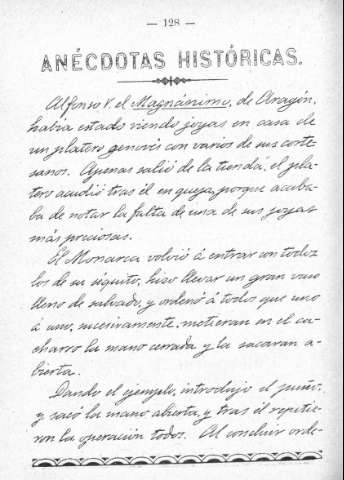 — 128 —
ANÉCDOTAS HISTÓRICAS.
Alfonso V. el Magnánimo, de Aragón,
habia estado viendo joyas en casa de
un platero genovés con varios de sus corte-
sanos. Apenas salió de la tienda, el pla-
tero acudió tras él en queja, porque acaba-
ba de notar la falta de una de sus joyas
más preciosas.
El Monarca volvió á entrar con todos
los de su séquito, hizo llevar un gran vaso
lleno de salvado, y ordenó á todos que uno
á uno, sucesivamente, metieran en el ca-
charro la mano cerrada y la sacaran a-
bierta.
Dando el ejemplo, introdujo el puño,
y sacó la mano abierta, y tras él repitie-
ron la operación todos. Al concluir orde-